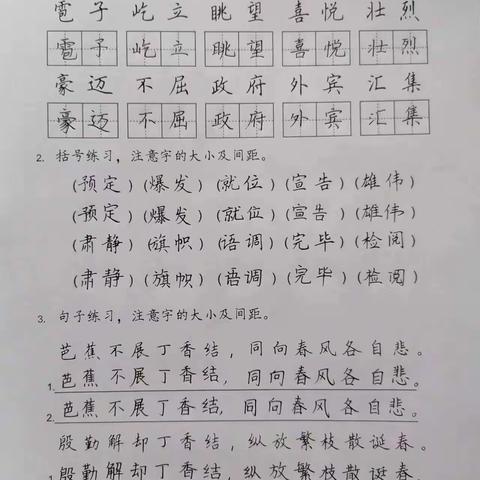 雹子 屹立 眺望 喜悦 壮烈
雹子 屹立 眺望 喜悦 壮烈
豪迈 不屈 政府 外宾 汇集
豪迈 不屈 政府 外宾 汇集
2. 括号练习，注意字的大小及间距。
(预定)(爆发)(就位)(宣告)(雄伟)
(预定)(爆发)(就位)(宣告)(雄伟)
(肃静)(旗帜)(语调)(完毕)(检阅)
(肃静)(旗帜)(语调)(完毕)(检阅)
3. 句子练习，注意字的大小及间距。
芭蕉不展丁香结，同向春风各自悲。
1. 芭蕉不展丁香结，同向春风各自悲。
2. 芭蕉不展丁香结，同向春风各自悲。
殷勤解却丁香结，纵放繁枝散诞春。
1. 殷勤解却丁香结，纵放繁枝散诞春。